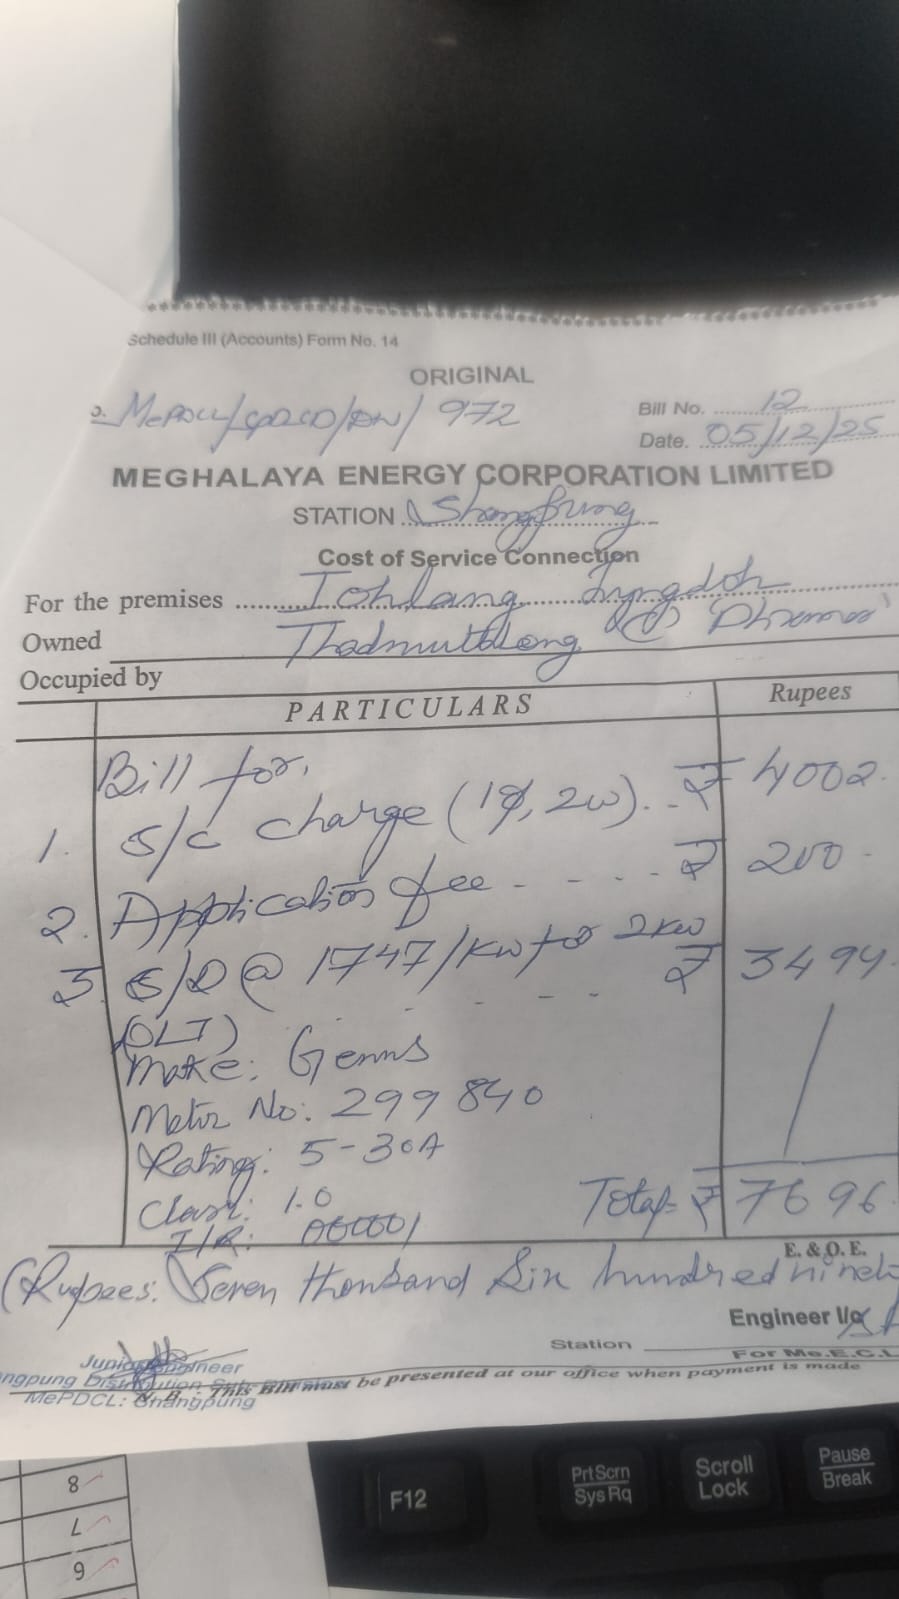 Schedule III (Accounts) Form No. 14
ORIGINAL
o. MePDCL/ /972
Bill No. 12
Date. 05/12/25
MEGHALAYA ENERGY CORPORATION LIMITED
STATION Shangpung
Cost of Service Connection
For the premises Iohlang Lyngdoh
Owned Thadmuthlong @
Occupied by
PARTICULARS Rupees
Bill for,
1. S/C charge (1φ, 2w). .. ₹ 4002.
2. Application fee - - - . - ₹ 200 -
3. S/D @ 1747/kw for 2kw ₹ 3494.
(DLT) . - - - -
Make: Genus
Meter No: 299840
Rating: 5-30A
Class: 1.0
I/R: 000001
Total= ₹ 7696.
E. & O. E.
(Rupees: Seven thousand Six hundred ninety
Engineer I/c
Station
For Me.E.C.L
Junior Engineer
ngpung Distribution Sub-
MePDCL: Shangpung
N. B. : This Bill must be presented at our office when payment is made
8
7
6
F12
PrtScrn
SysRq
Scroll
Lock
Pause
Break